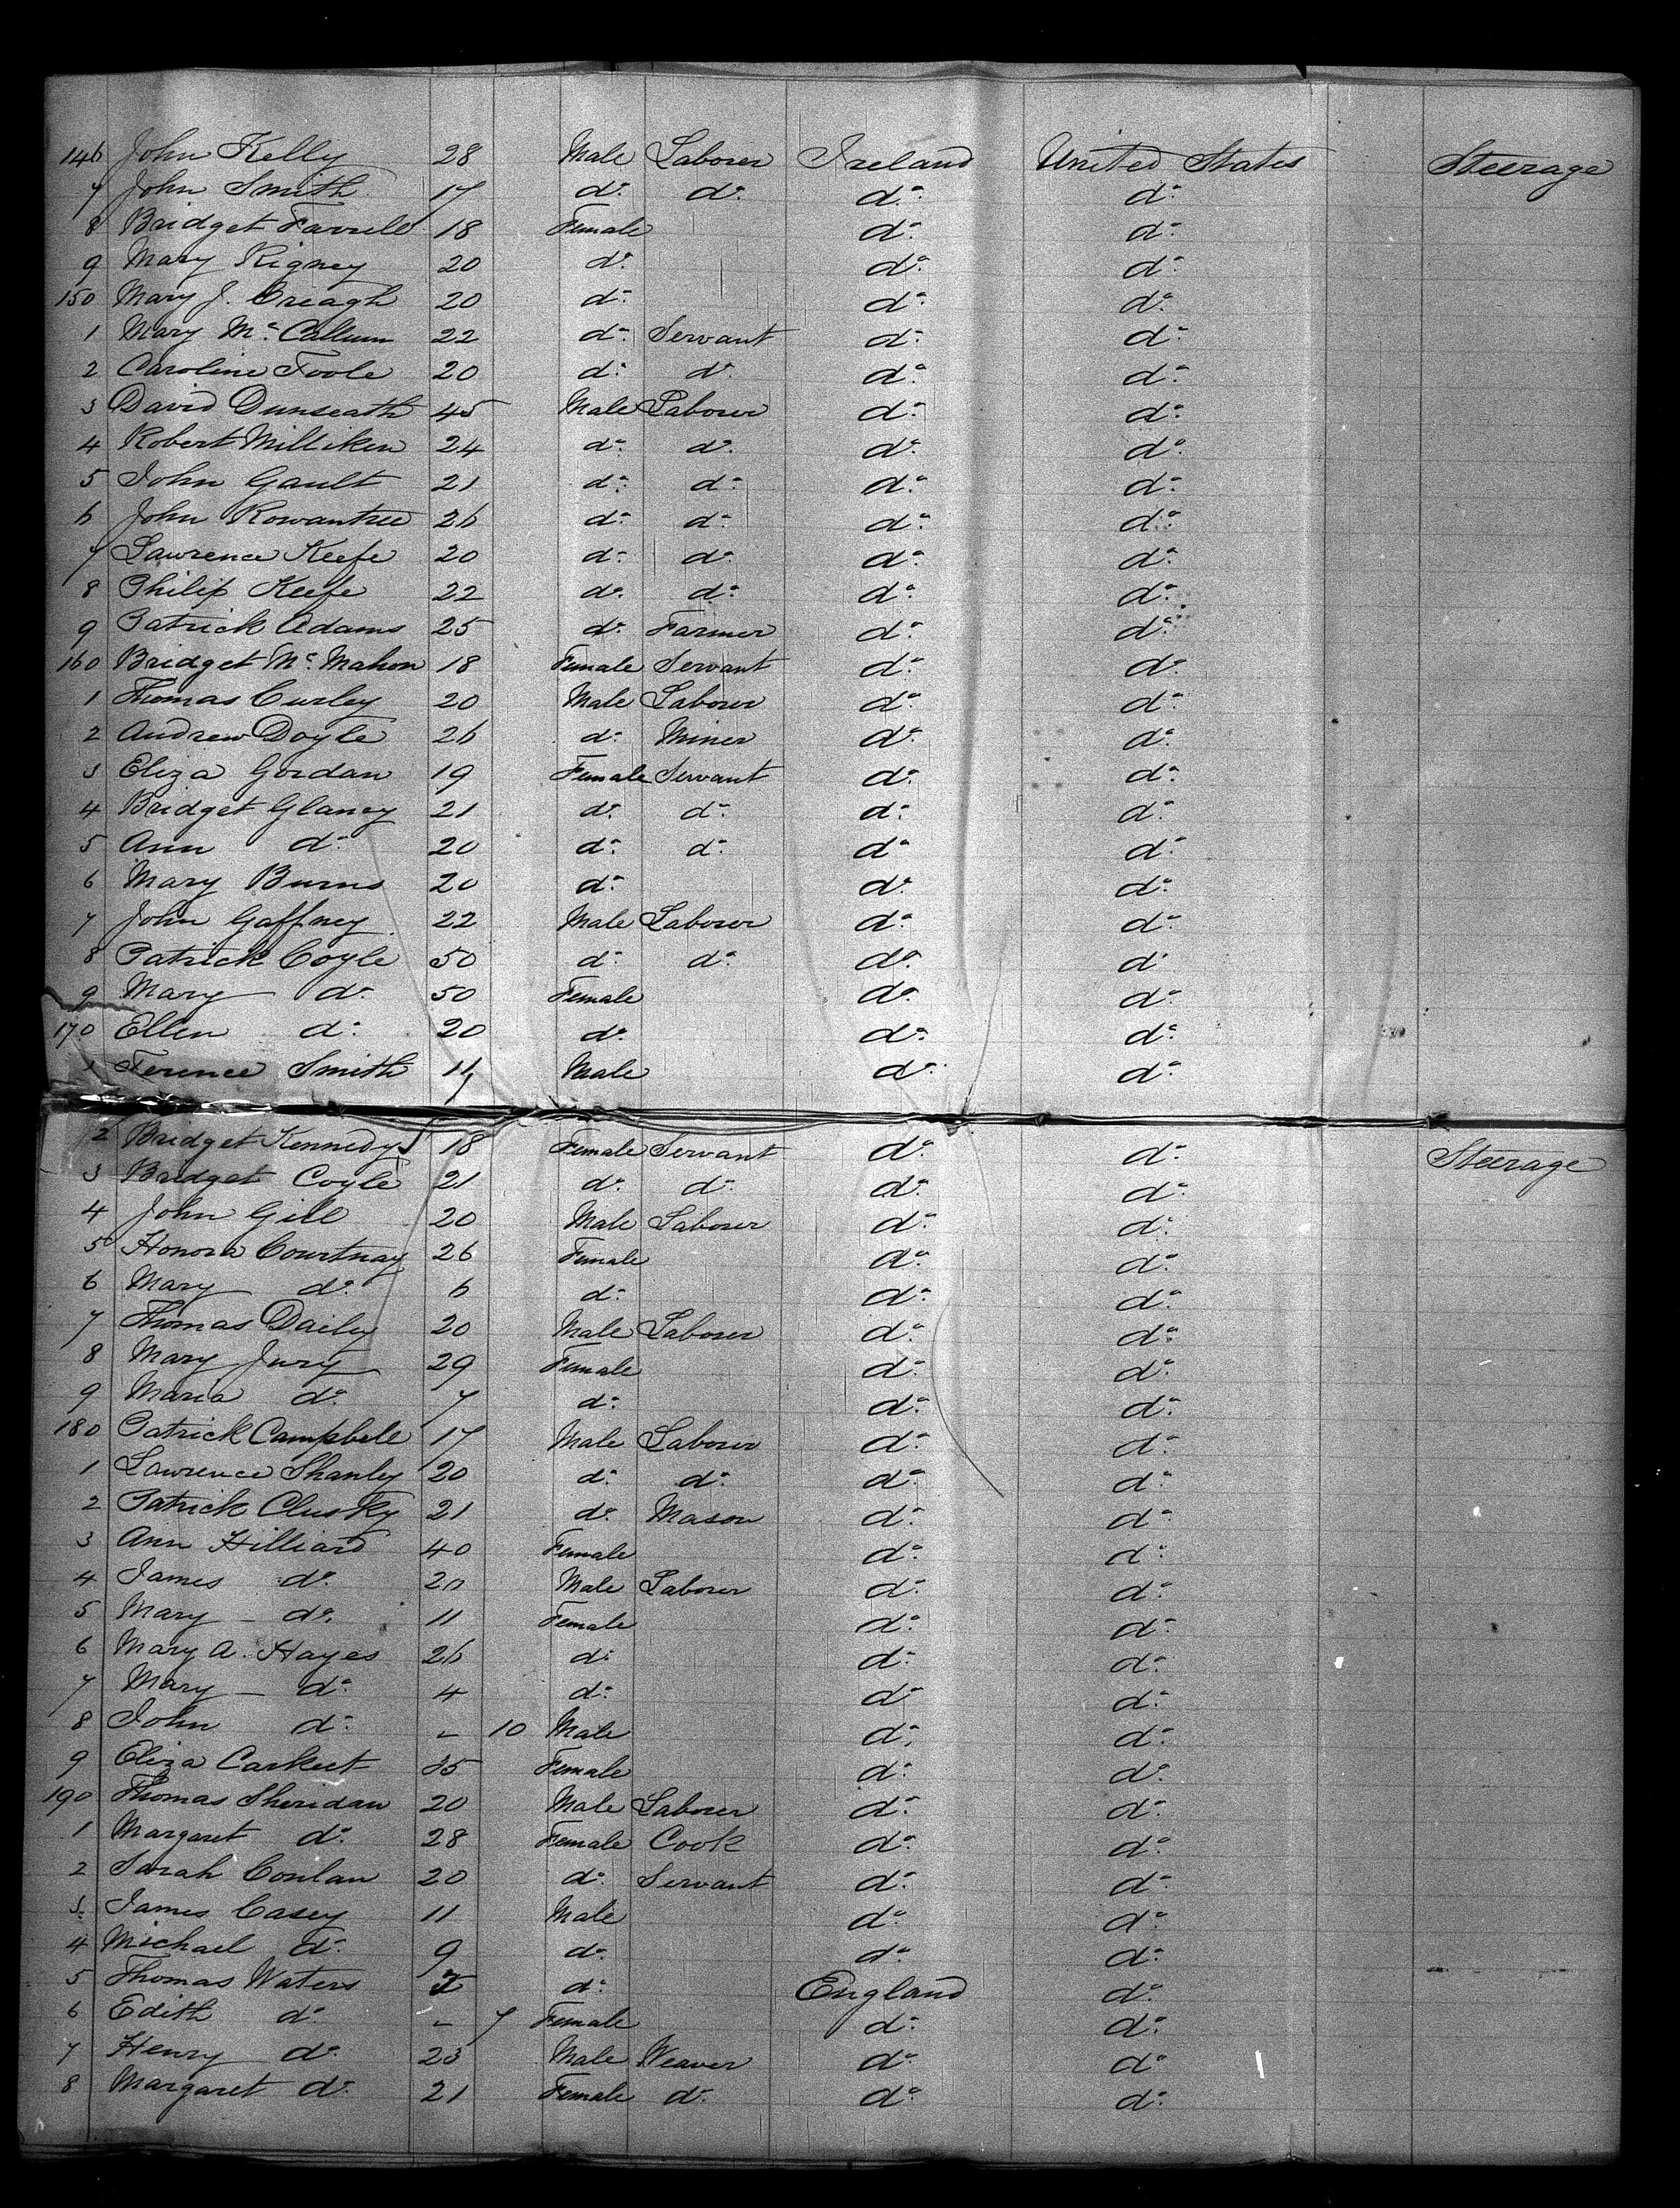 146 John Kelly 28 Male Laborer Ireland United States Steerage
7 John Smith 17 do. do. do. do.
8 Bridget Farrell 18 Female do. do.
9 Mary Rigney 20 do. do. do.
150 Mary J. Creagh 20 do. do. do.
1 Mary Mc. Callum 22 do. Servant do. do.
2 Caroline Toole 20 do. do. do. do.
3 David Dunseath 45 Male Laborer do. do.
4 Robert Milliken 24 do. do. do. do.
5 John Gault 21 do. do. do. do.
6 John Rowantree 26 do. do. do. do.
7 Lawrence Keefe 20 do. do. do. do.
8 Philip Keefe 22 do. do. do. do.
9 Patrick Adams 25 do. Farmer do. do.
160 Bridget Mc. Mahon 18 Female Servant do. do.
1 Thomas Curley 20 Male Laborer do. do.
2 Andrew Doyle 26 do. Miner do. do.
3 Eliza Gordan 19 Female Servant do. do.
4 Bridget Glancy 21 do. do. do. do.
5 Ann do. 20 do. do. do. do.
6 Mary Burns 20 do. do. do.
7 John Gaffney 22 Male Laborer do. do.
8 Patrick Coyle 50 do. do. do. do.
9 Mary do. 50 Female do. do.
170 Ellen do. 20 do. do. do.
1 Terence Smith 11 Male do. do.
2 Bridget Kennedy 18 Female Servant do. do. Steerage
3 Bridget Coyle 21 do. do. do. do.
4 John Gill 20 Male Laborer do. do.
5 Honora Courtnay 26 Female do. do.
6 Mary do. 6 do. do. do.
7 Thomas Daily 20 Male Laborer do. do.
8 Mary Jury 29 Female do. do.
9 Maria do. 7 do. do. do.
180 Patrick Campbell 17 Male Laborer do. do.
1 Lawrence Shanley 20 do. do. do. do.
2 Patrick Clusky 21 do. Mason do. do.
3 Ann Hilliard 40 Female do. do.
4 James do. 20 Male Laborer do. do.
5 Mary do. 11 Female do. do.
6 Mary A. Hayes 26 do. do. do.
7 Mary do. 4 do. do. do.
8 John do. - 10 Male do. do.
9 Eliza Carkeet 35 Female do. do.
190 Thomas Sheridan 20 Male Laborer do. do.
1 Margaret do. 28 Female Cook do. do.
2 Sarah Conlan 20 do. Servant do. do.
3 James Casey 11 Male do. do.
4 Michael do. 9 do. do. do.
5 Thomas Waters do. England do.
6 Edith do. - 7 Female do. do.
7 Henry do. 23 Male Weaver do. do.
8 Margaret do. 21 Female do. do. do.